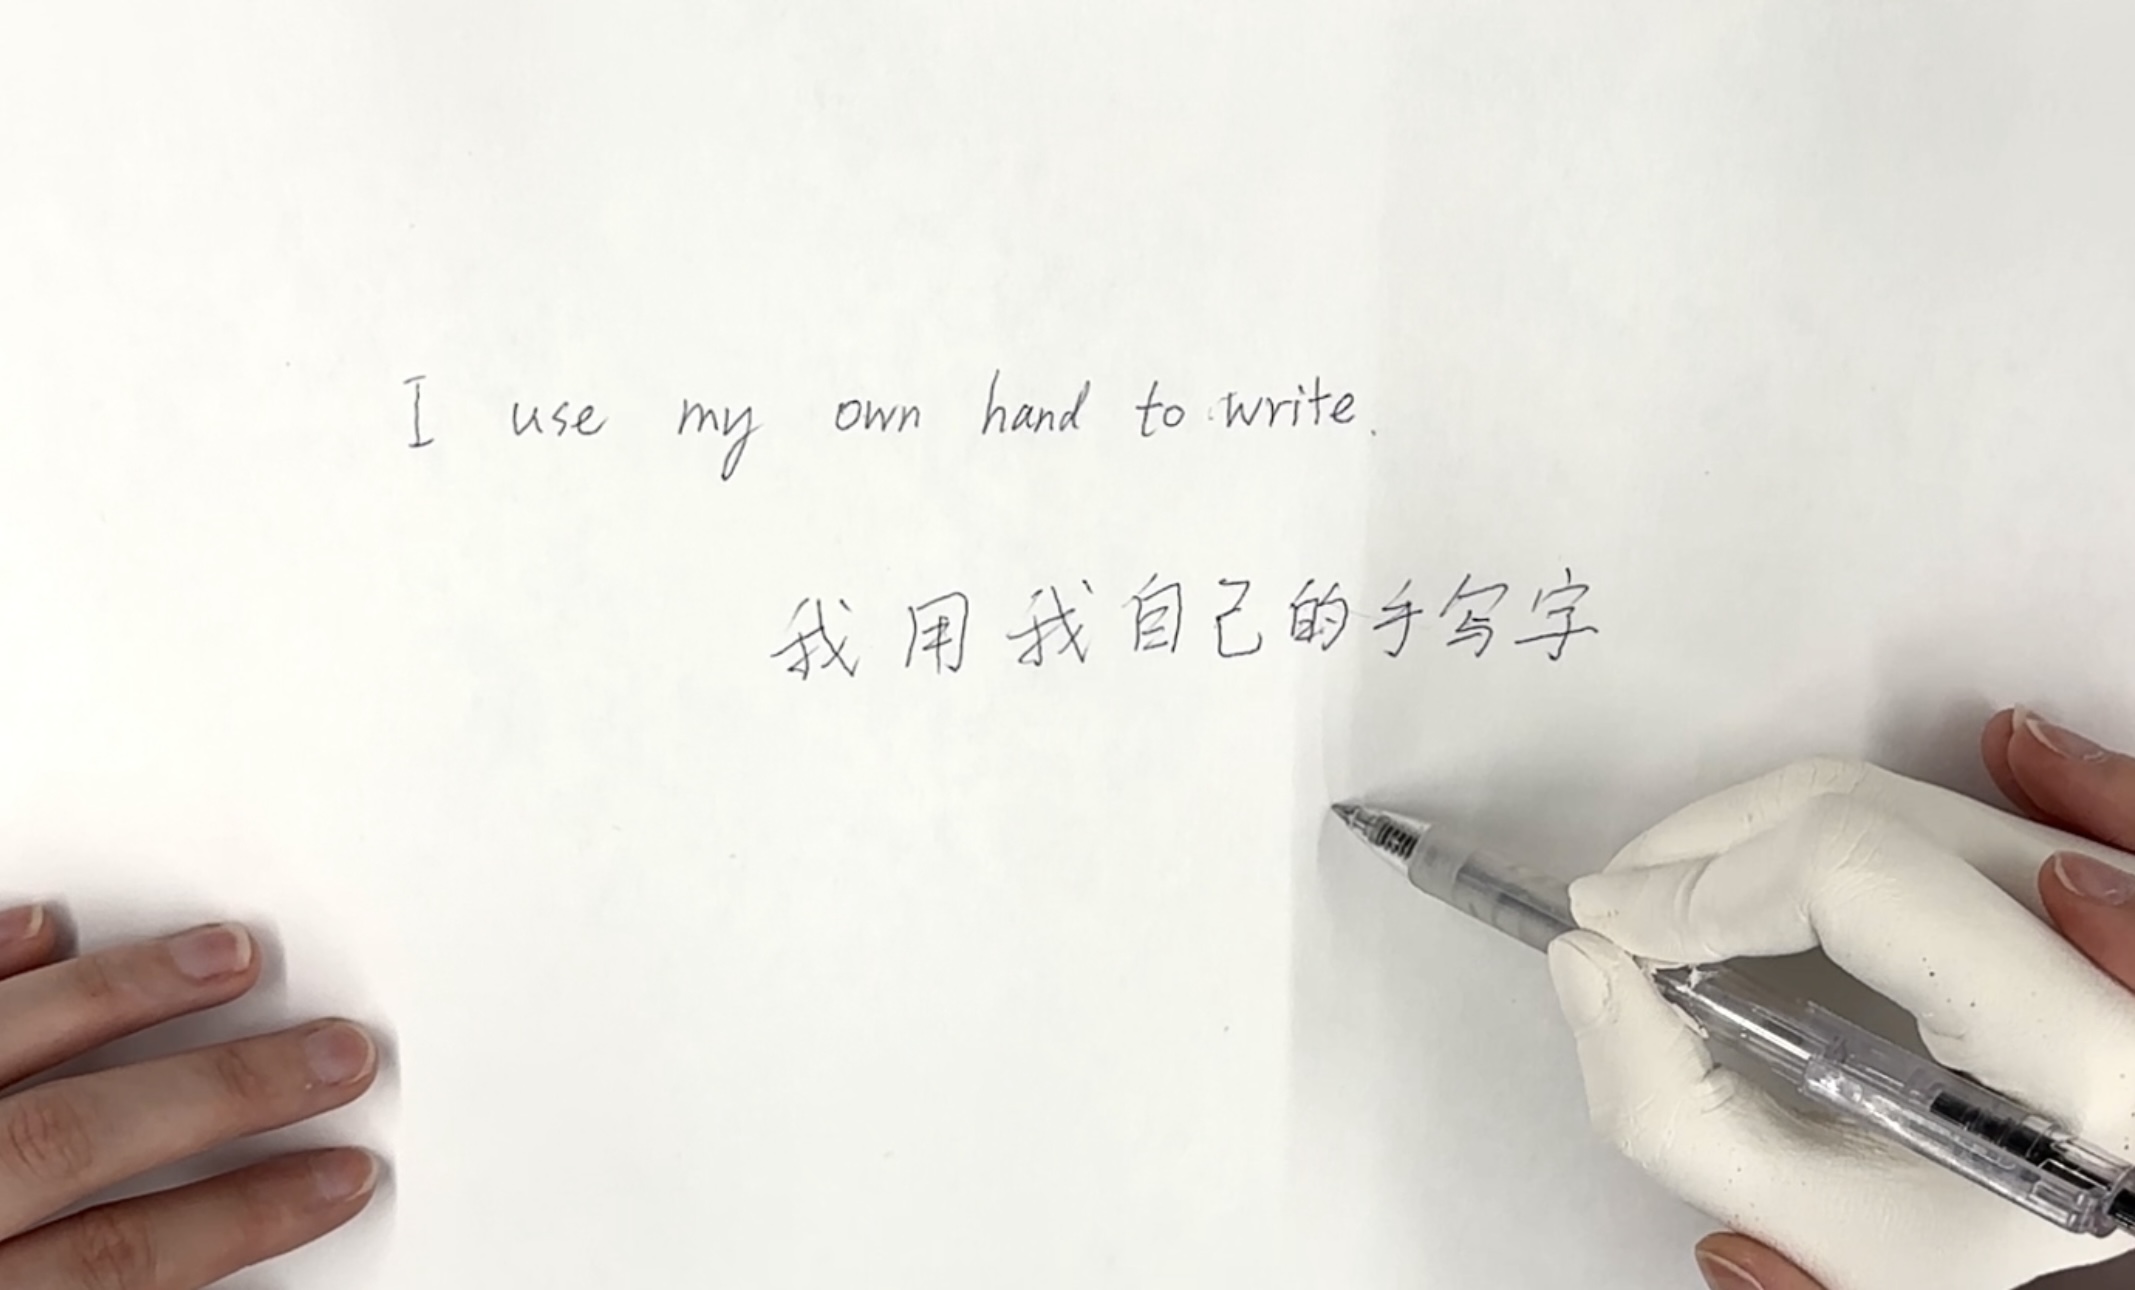 I use my own hand to write.
我用我自己的手写字